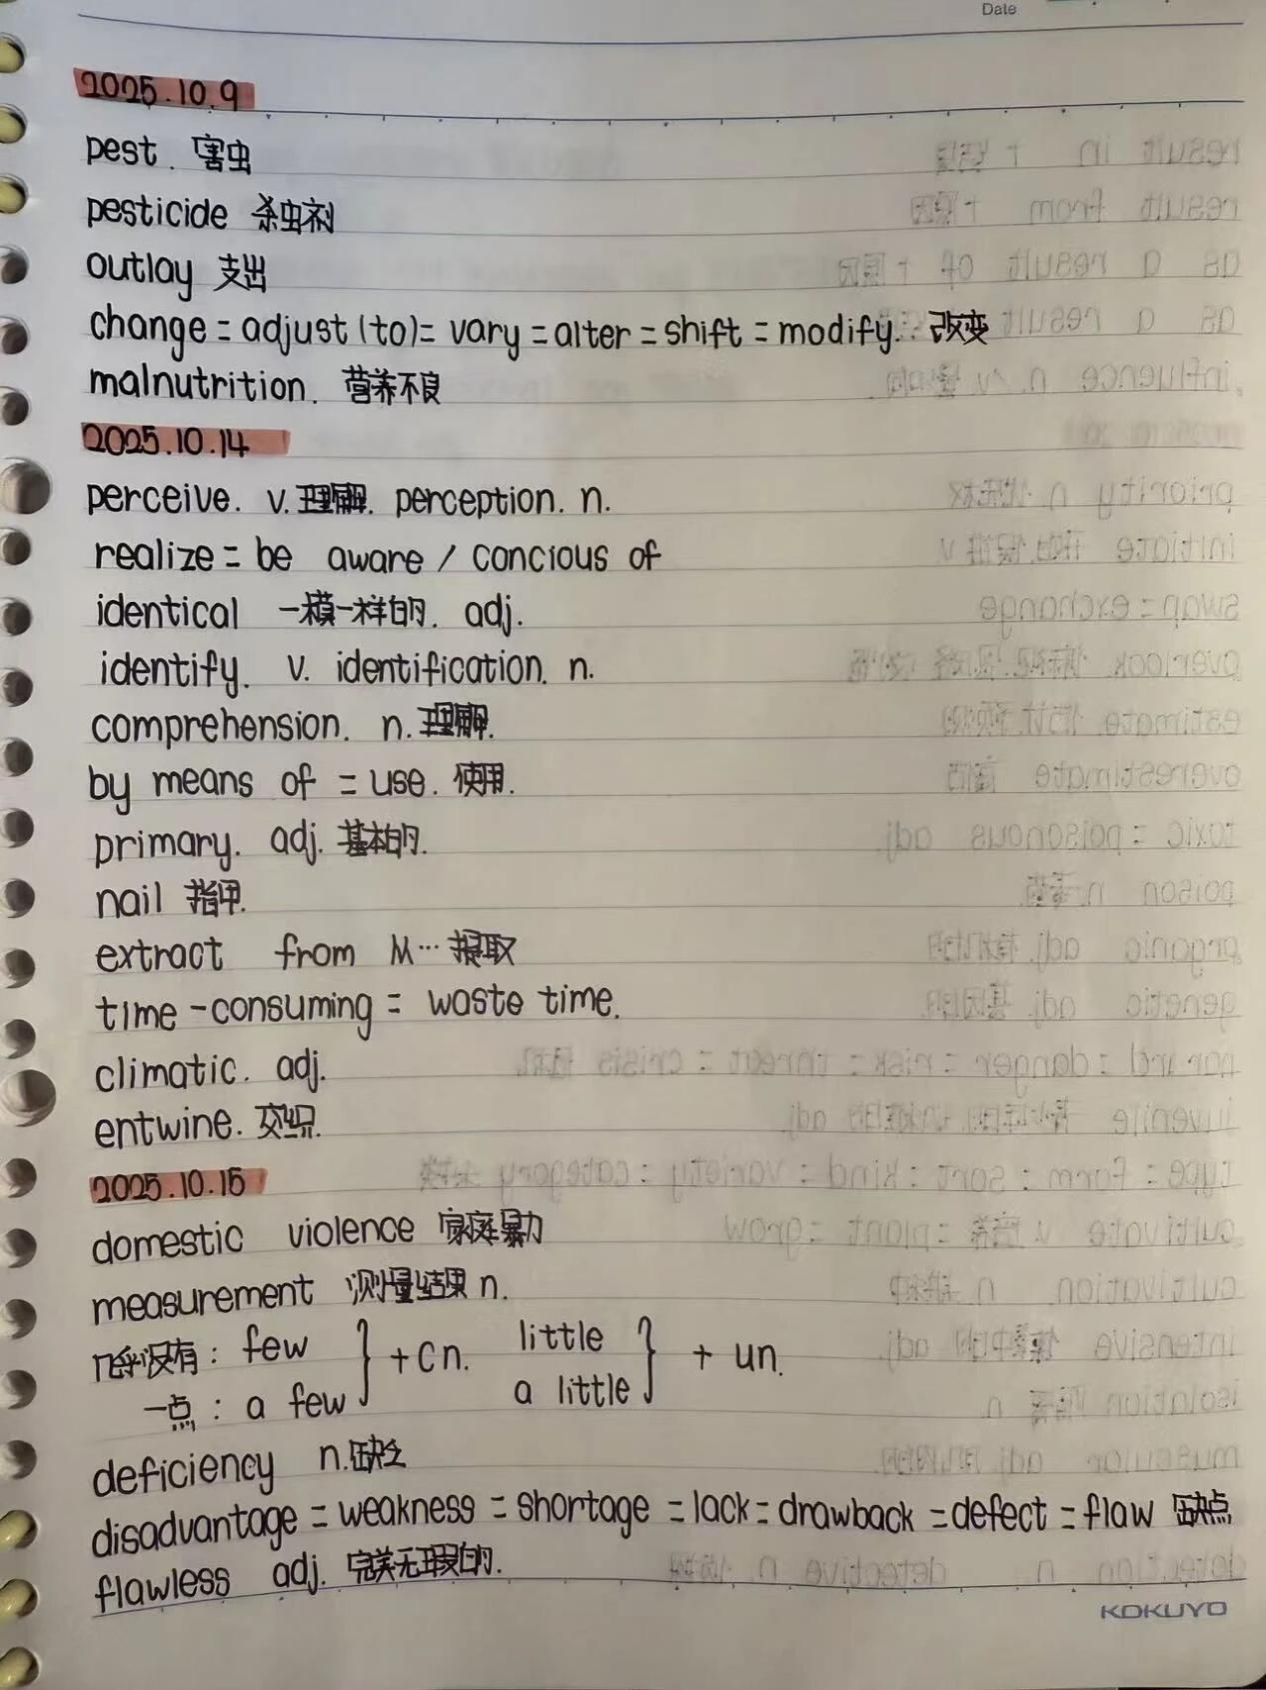 Date
2025.10.9
pest. 害虫
pesticide 杀虫剂
outlay 支出
change = adjust (to) = vary = alter = shift = modify. 改变
malnutrition. 营养不良
2025.10.14
perceive. v.理解. perception. n.
realize = be aware / concious of
identical 一模一样的. adj.
identify. v. identification. n.
comprehension. n.理解.
by means of = use. 使用.
primary. adj. 基本的.
nail 指甲.
extract from 从…提取
time-consuming = waste time.
climatic. adj.
entwine. 交织.
2025.10.15
domestic violence 家庭暴力
measurement 测量结果 n.
几乎没有: few } + cn. little } + un.
一点: a few a little
deficiency n.缺乏
disadvantage = weakness = shortage = lack = drawback = defect = flaw 缺点
flawless adj. 完美无瑕的.
KOKUYO